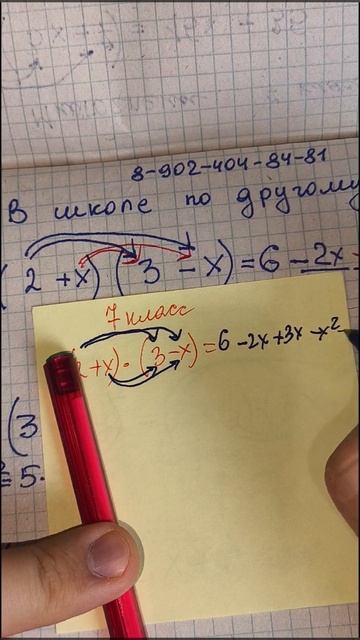 8-902-404-84-81
В школе по другому
(2 + x) (3 - x) = 6 - 2x
7 класс
2 + x) · (3 - x) = 6 - 2x + 3x - x²
(3
= 5.